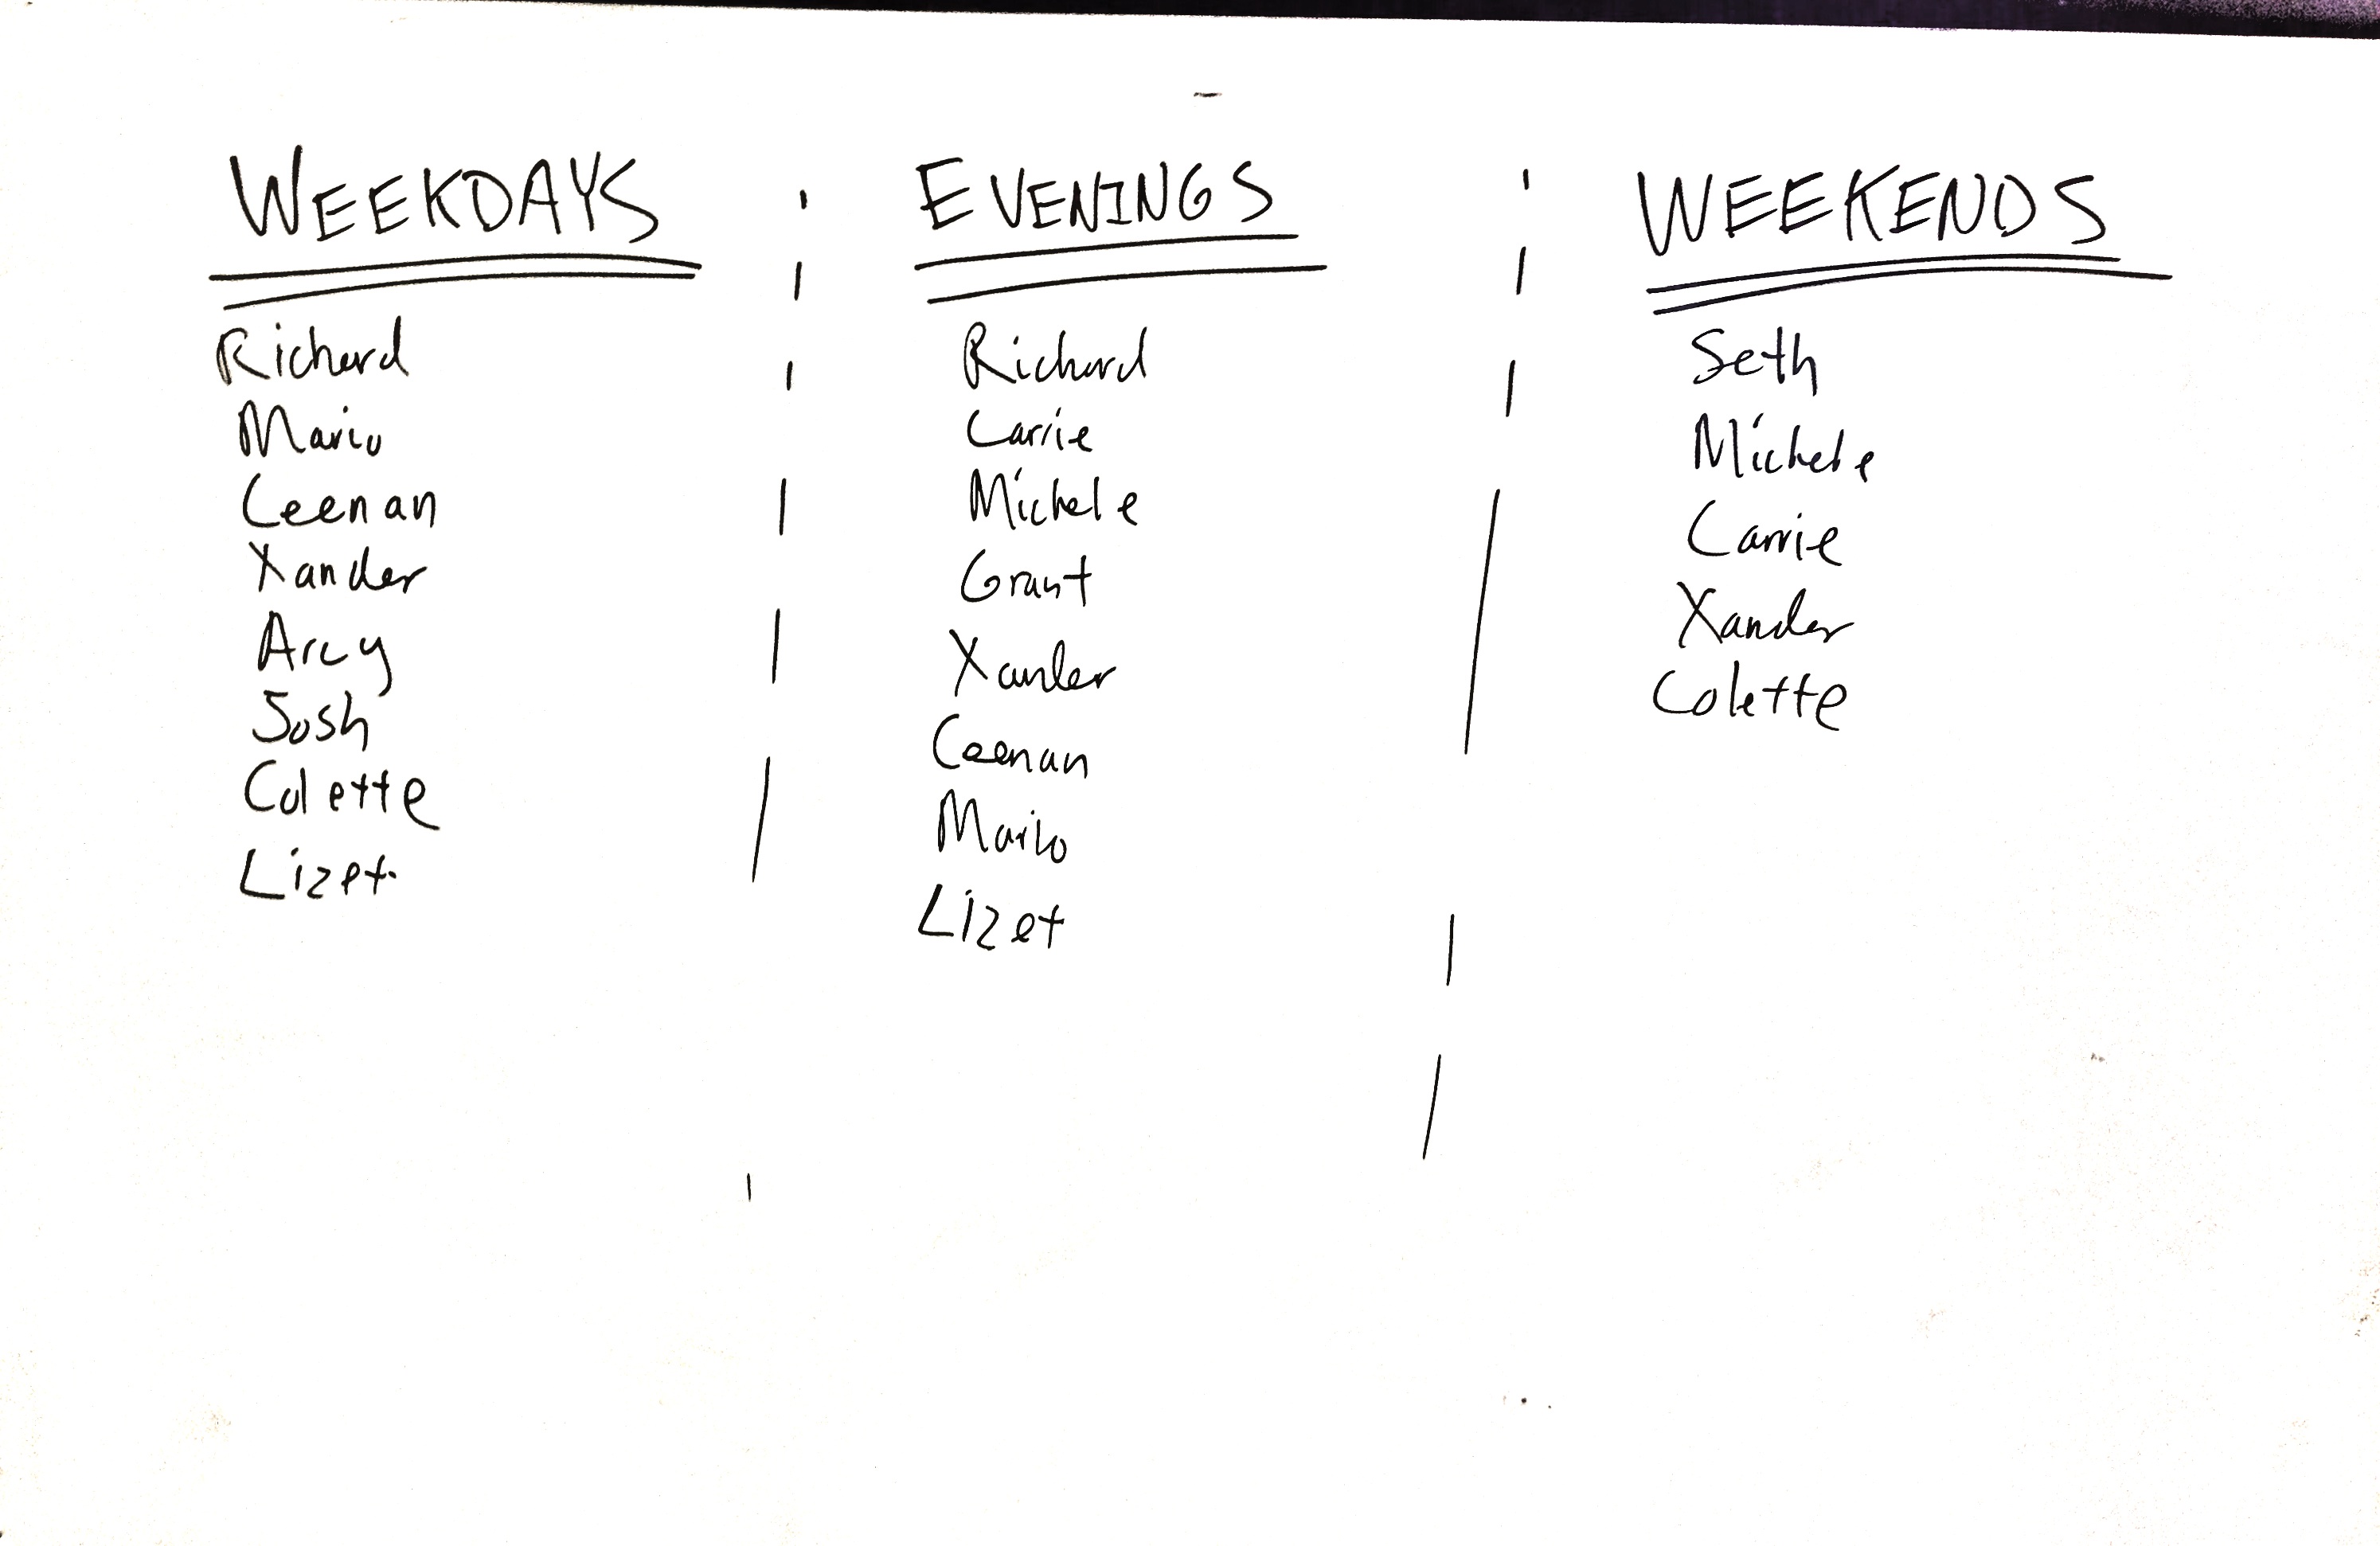 WEEKDAYS
Richard
Mario
Ceenan
Xander
Arcy
Josh
Colette
Lizet
EVENINGS
Richard
Carrie
Michele
Grant
Xander
Ceenan
Mario
Lizet
WEEKENDS
Seth
Michele
Carrie
Xander
Colette